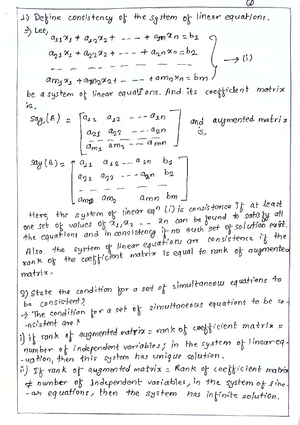 1.) Define consistency of the system of linear equations.
⇒ Let,
a11x1 + a12x2 + --- + a1nxn = b1
a21x1 + a22x2 + --- + a2nxn = b2
→ (i)
am1x1 + am2x2 + --- + amnxn = bm
be a system of linear equations. And its coefficient matrix
is,
say (A) = [ a11 a12 --- a1n
a21 a22 --- a2n
am1 am2 --- amn ] and augmented matrix is,
say (B) = [ a11 a12 --- a1n b1
a21 a22 --- a2n b2
am1 am2 amn bm ]
Here, the system of linear eqn (i) is consistence if at least
one set of values of x1, x2 --- xn can be found to satisfy all
the equations and in consistency if no such set of solution exist.
Also the system of linear equations are consistence if the
rank of the coefficient matrix is equal to rank of augmented
matrix.
2) State the condition for a set of simultaneous equations to
be consistent?
→ The condition for a set of simultaneous equations to be co-
-nsistent are:
i) if rank of augmented matrix = rank of coefficient matrix =
number of independent variables, in the system of linear eq-
-uation, then this system has unique solution.
ii) If rank of augmented matrix = Rank of coefficient matrix
≠ number of independent variables, in the system of line-
-ar equations, then the system has infinite solution.